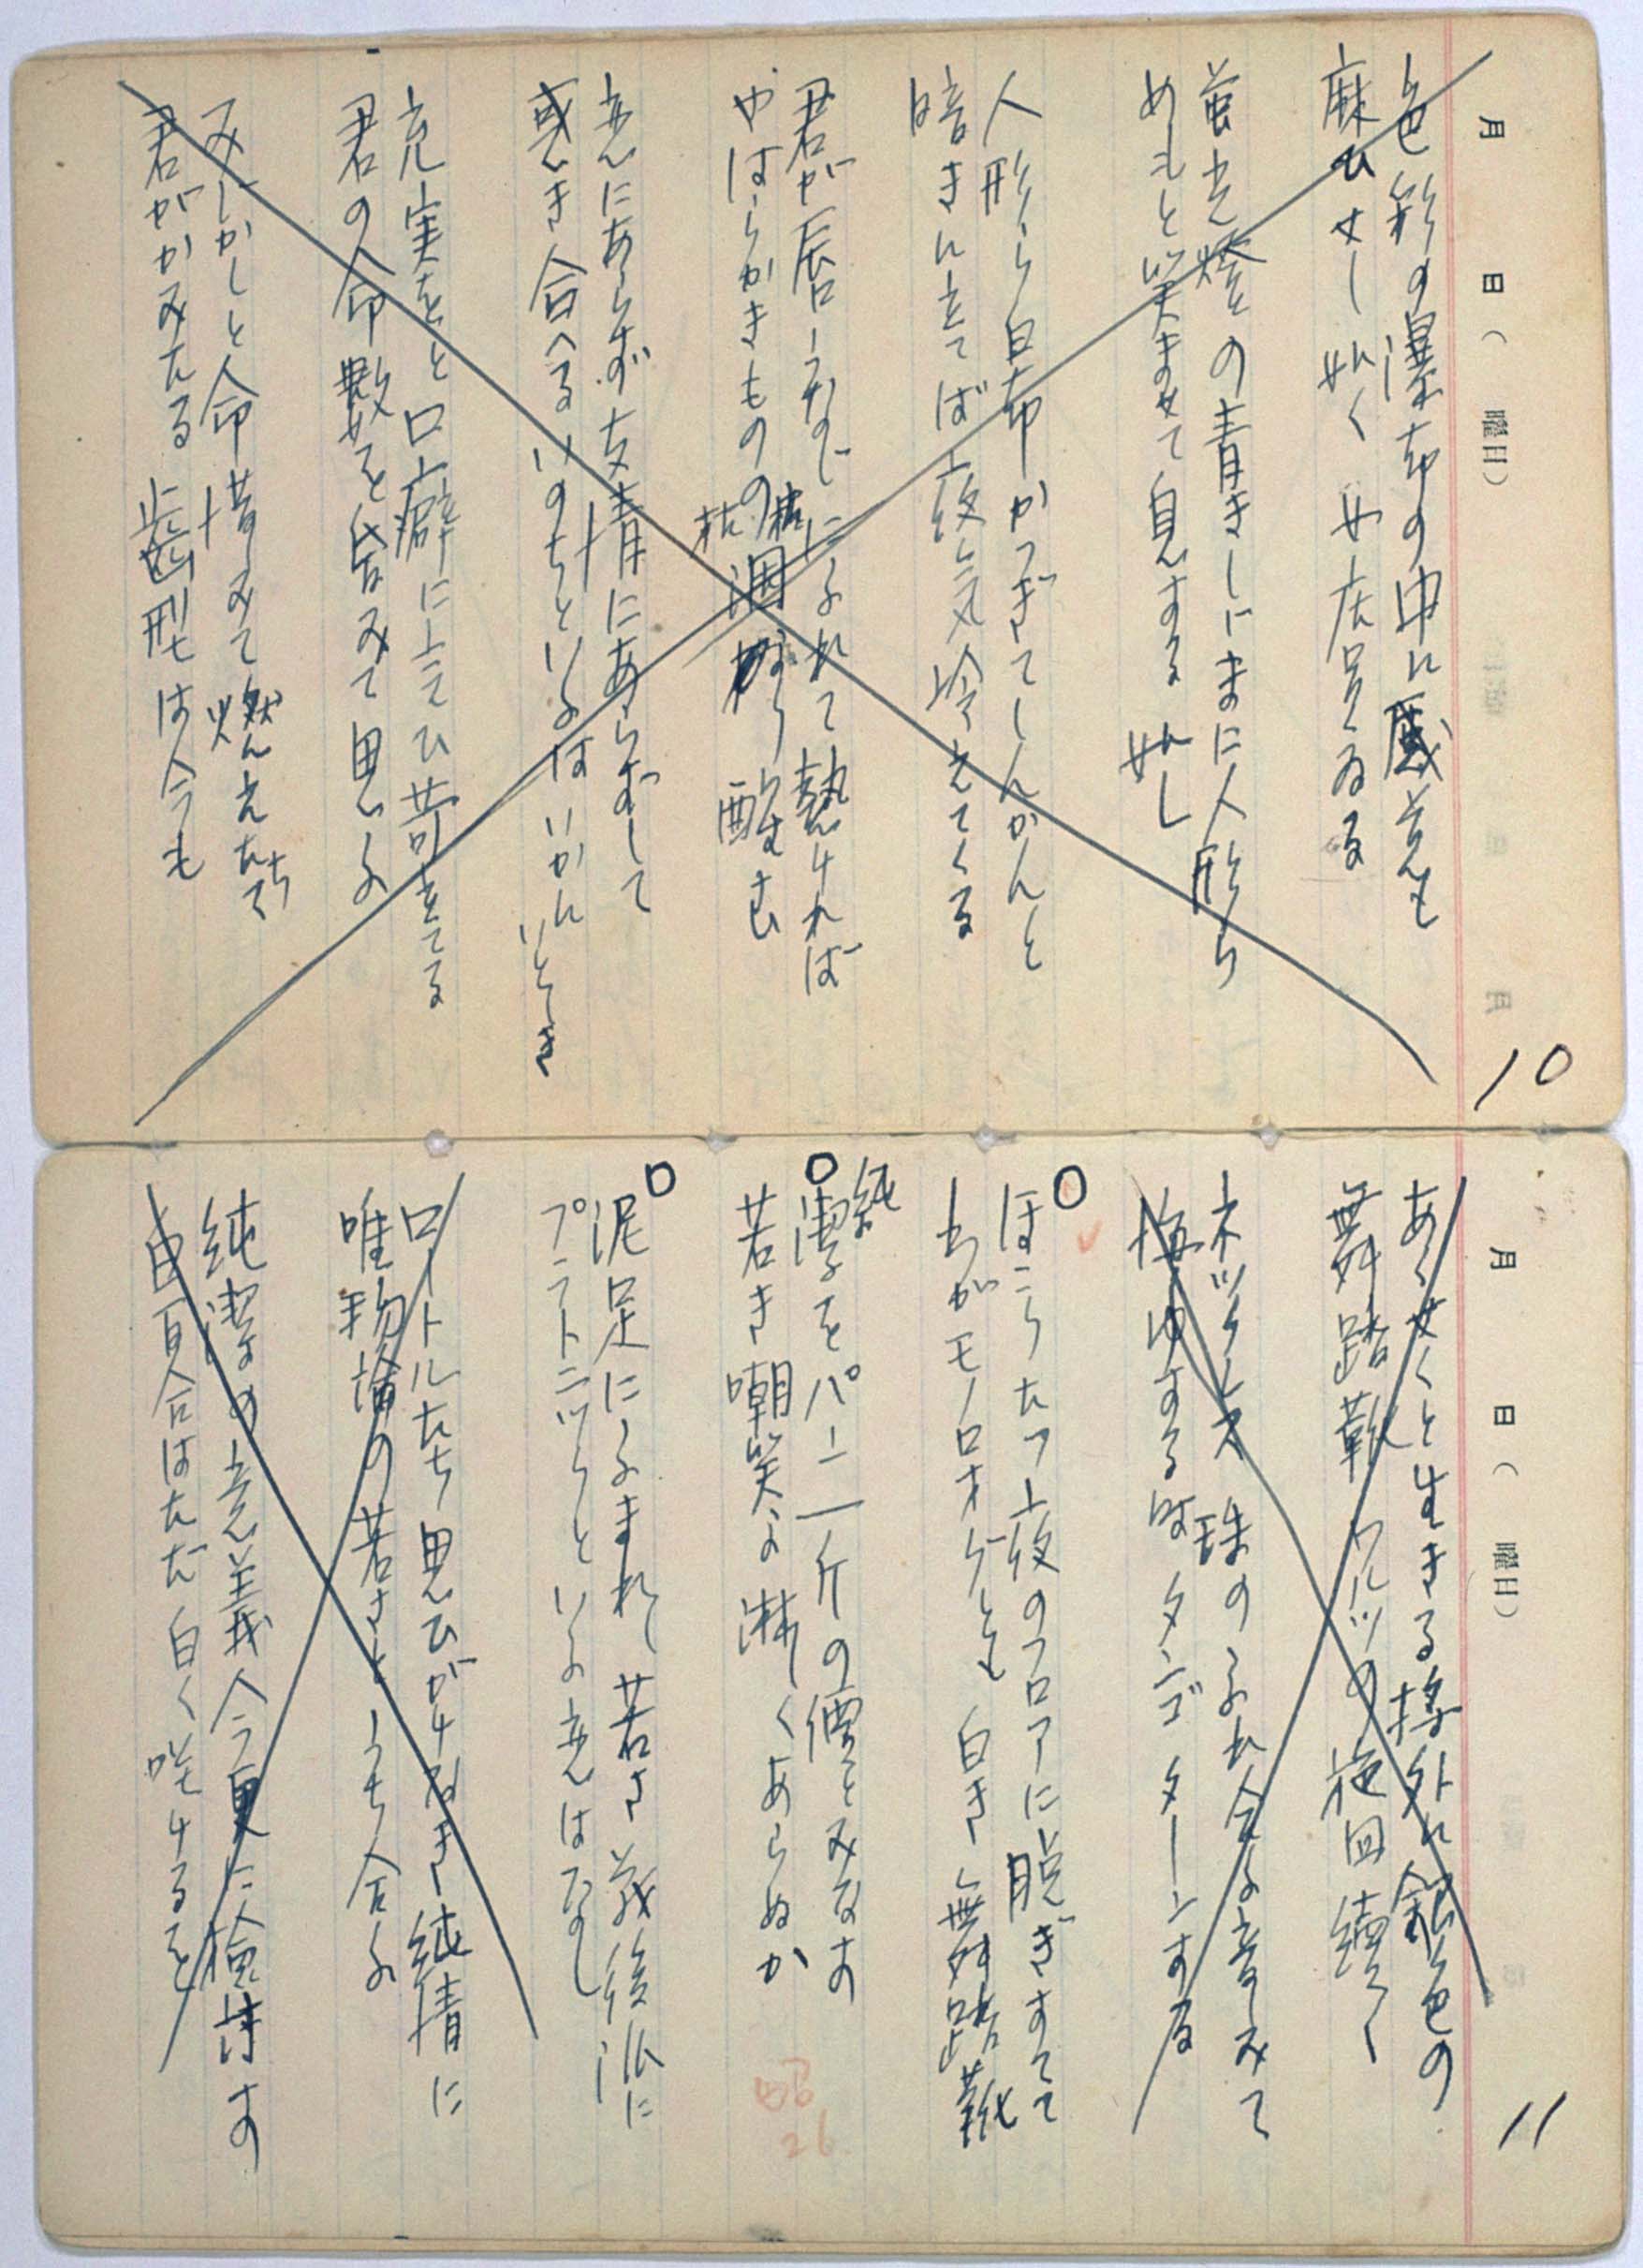 月 日( 曜日)
10
色彩の瀑布の中に感覚も
麻ひせし如くや店員ゐる
螢光燈の青きしじまに人形ら
めもと笑ませて息する如し
人形ら白布かつぎてしんかんと
暗きに立てば夜気冷えてくる
君が唇うなじにふれて熱ければ
やはらかきものの 酸き
恋にあらず友情にあらずして
惑き合へるいのちといふはいかに
いとき
充実をと口癖に云ひ苛立てる
君の命数を皆みて思ふ
みじかしと命惜しみて燃えたちて
君がかみたる歯型は今も
月 日( 曜日)
11
あくせくと生きる 外に銀色の
舞踏靴ワルツの旋回續く
ネックレス珠のふれ合ふ音しみて
悔ゆする時タンゴターンする
ほこりたつ夜のフロアに脱ぎすてて
わがモノローグとも白き舞踏靴
純潔をパン一斤の價とみなす
若き嘲笑よ淋しくあらぬか
泥足にふまれし若き義後派に
プラトニックといふ恋はなし
ロートルたち思ひがけなき純情に
唯物論の若さとうち合ふ
純潔の意義今更に検討す
白百合はただ白く咲けるを